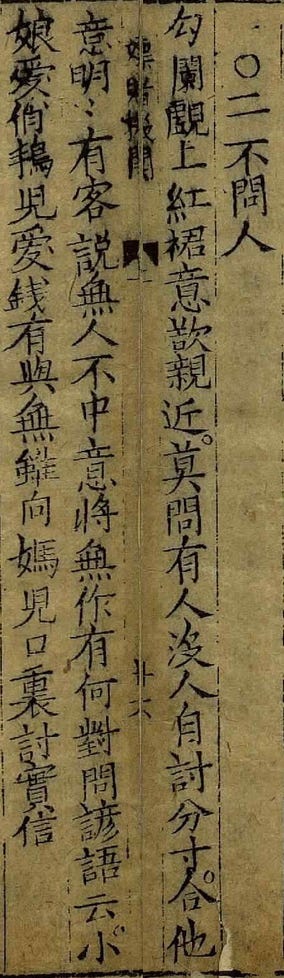 ○二不問人
勾闌覷上紅裙意欲親近。莫問有人沒人自討分寸。合他
嫖賭機關 廿六
意明〻有客說無人不中意將無作有何對問諺語云小
娘愛俏鴇兒愛錢有與無難向媽兒口裏討實信